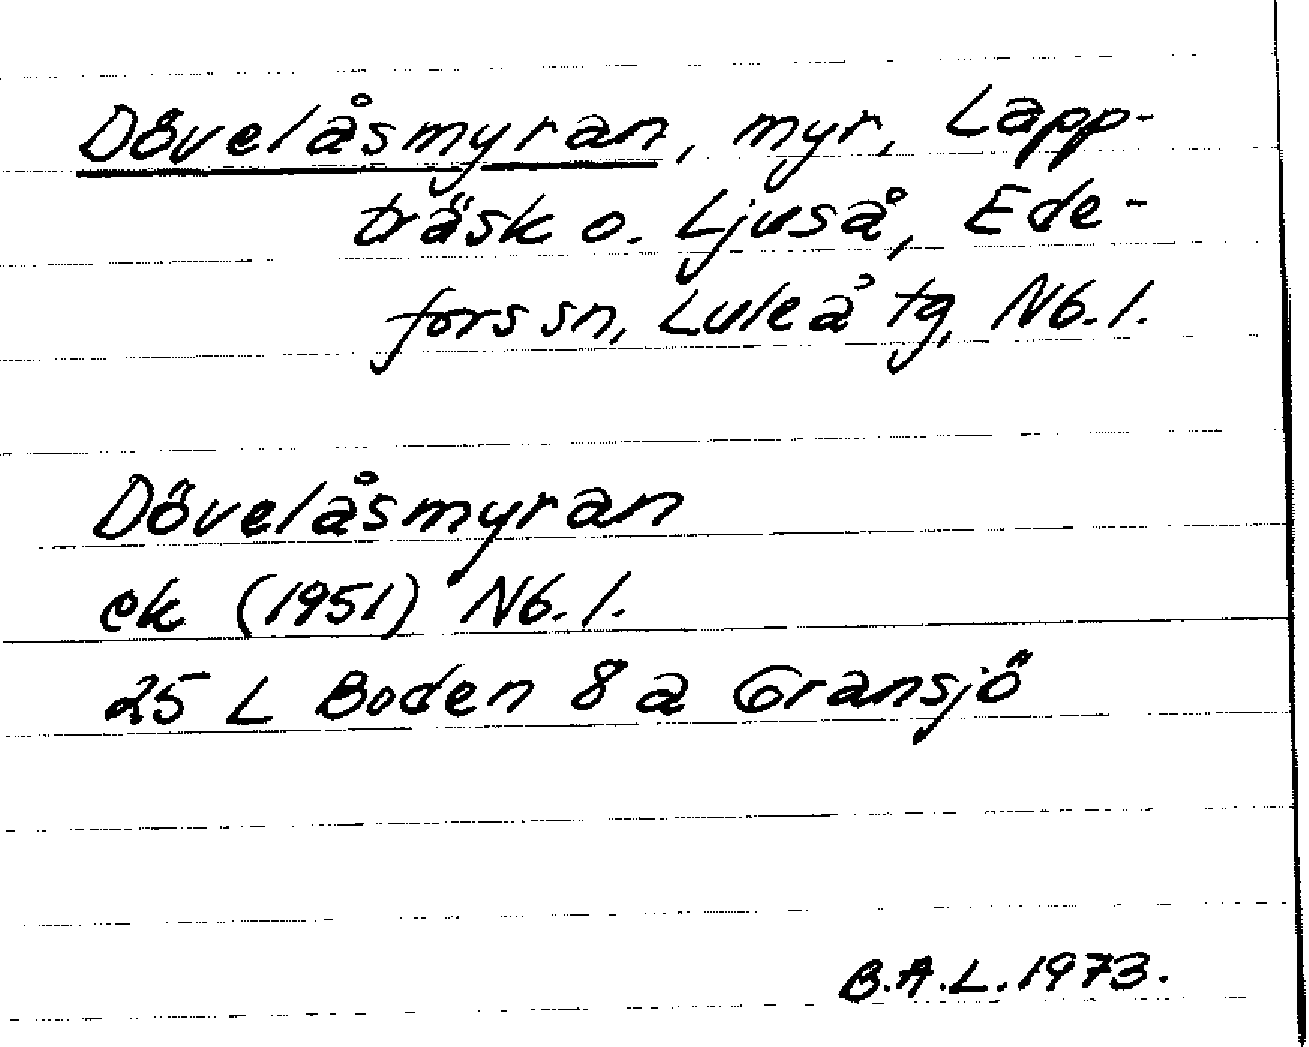 Dövelåsmyran, myr, Lapp-
träsk o. Ljuså, Ede-
fors sn, Luleå tg, Nb. l.
Dövelåsmyran
ek (1951) Nb. l.
25 L Boden 8 a Gransjö
B.A.L. 1973.